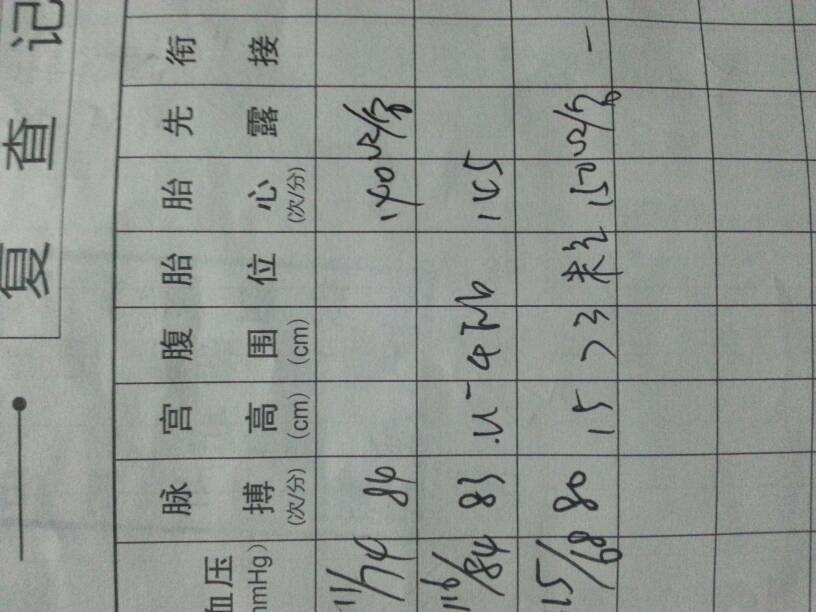 复查记
血压 mmHg) 脉搏 (次/分) 宫高 (cm) 腹围 (cm) 胎位 胎心 (次/分) 先露 衔接
11/74 84 140次/分
116/84 83 145
15/68 80 15 73 未定 150次/分 —